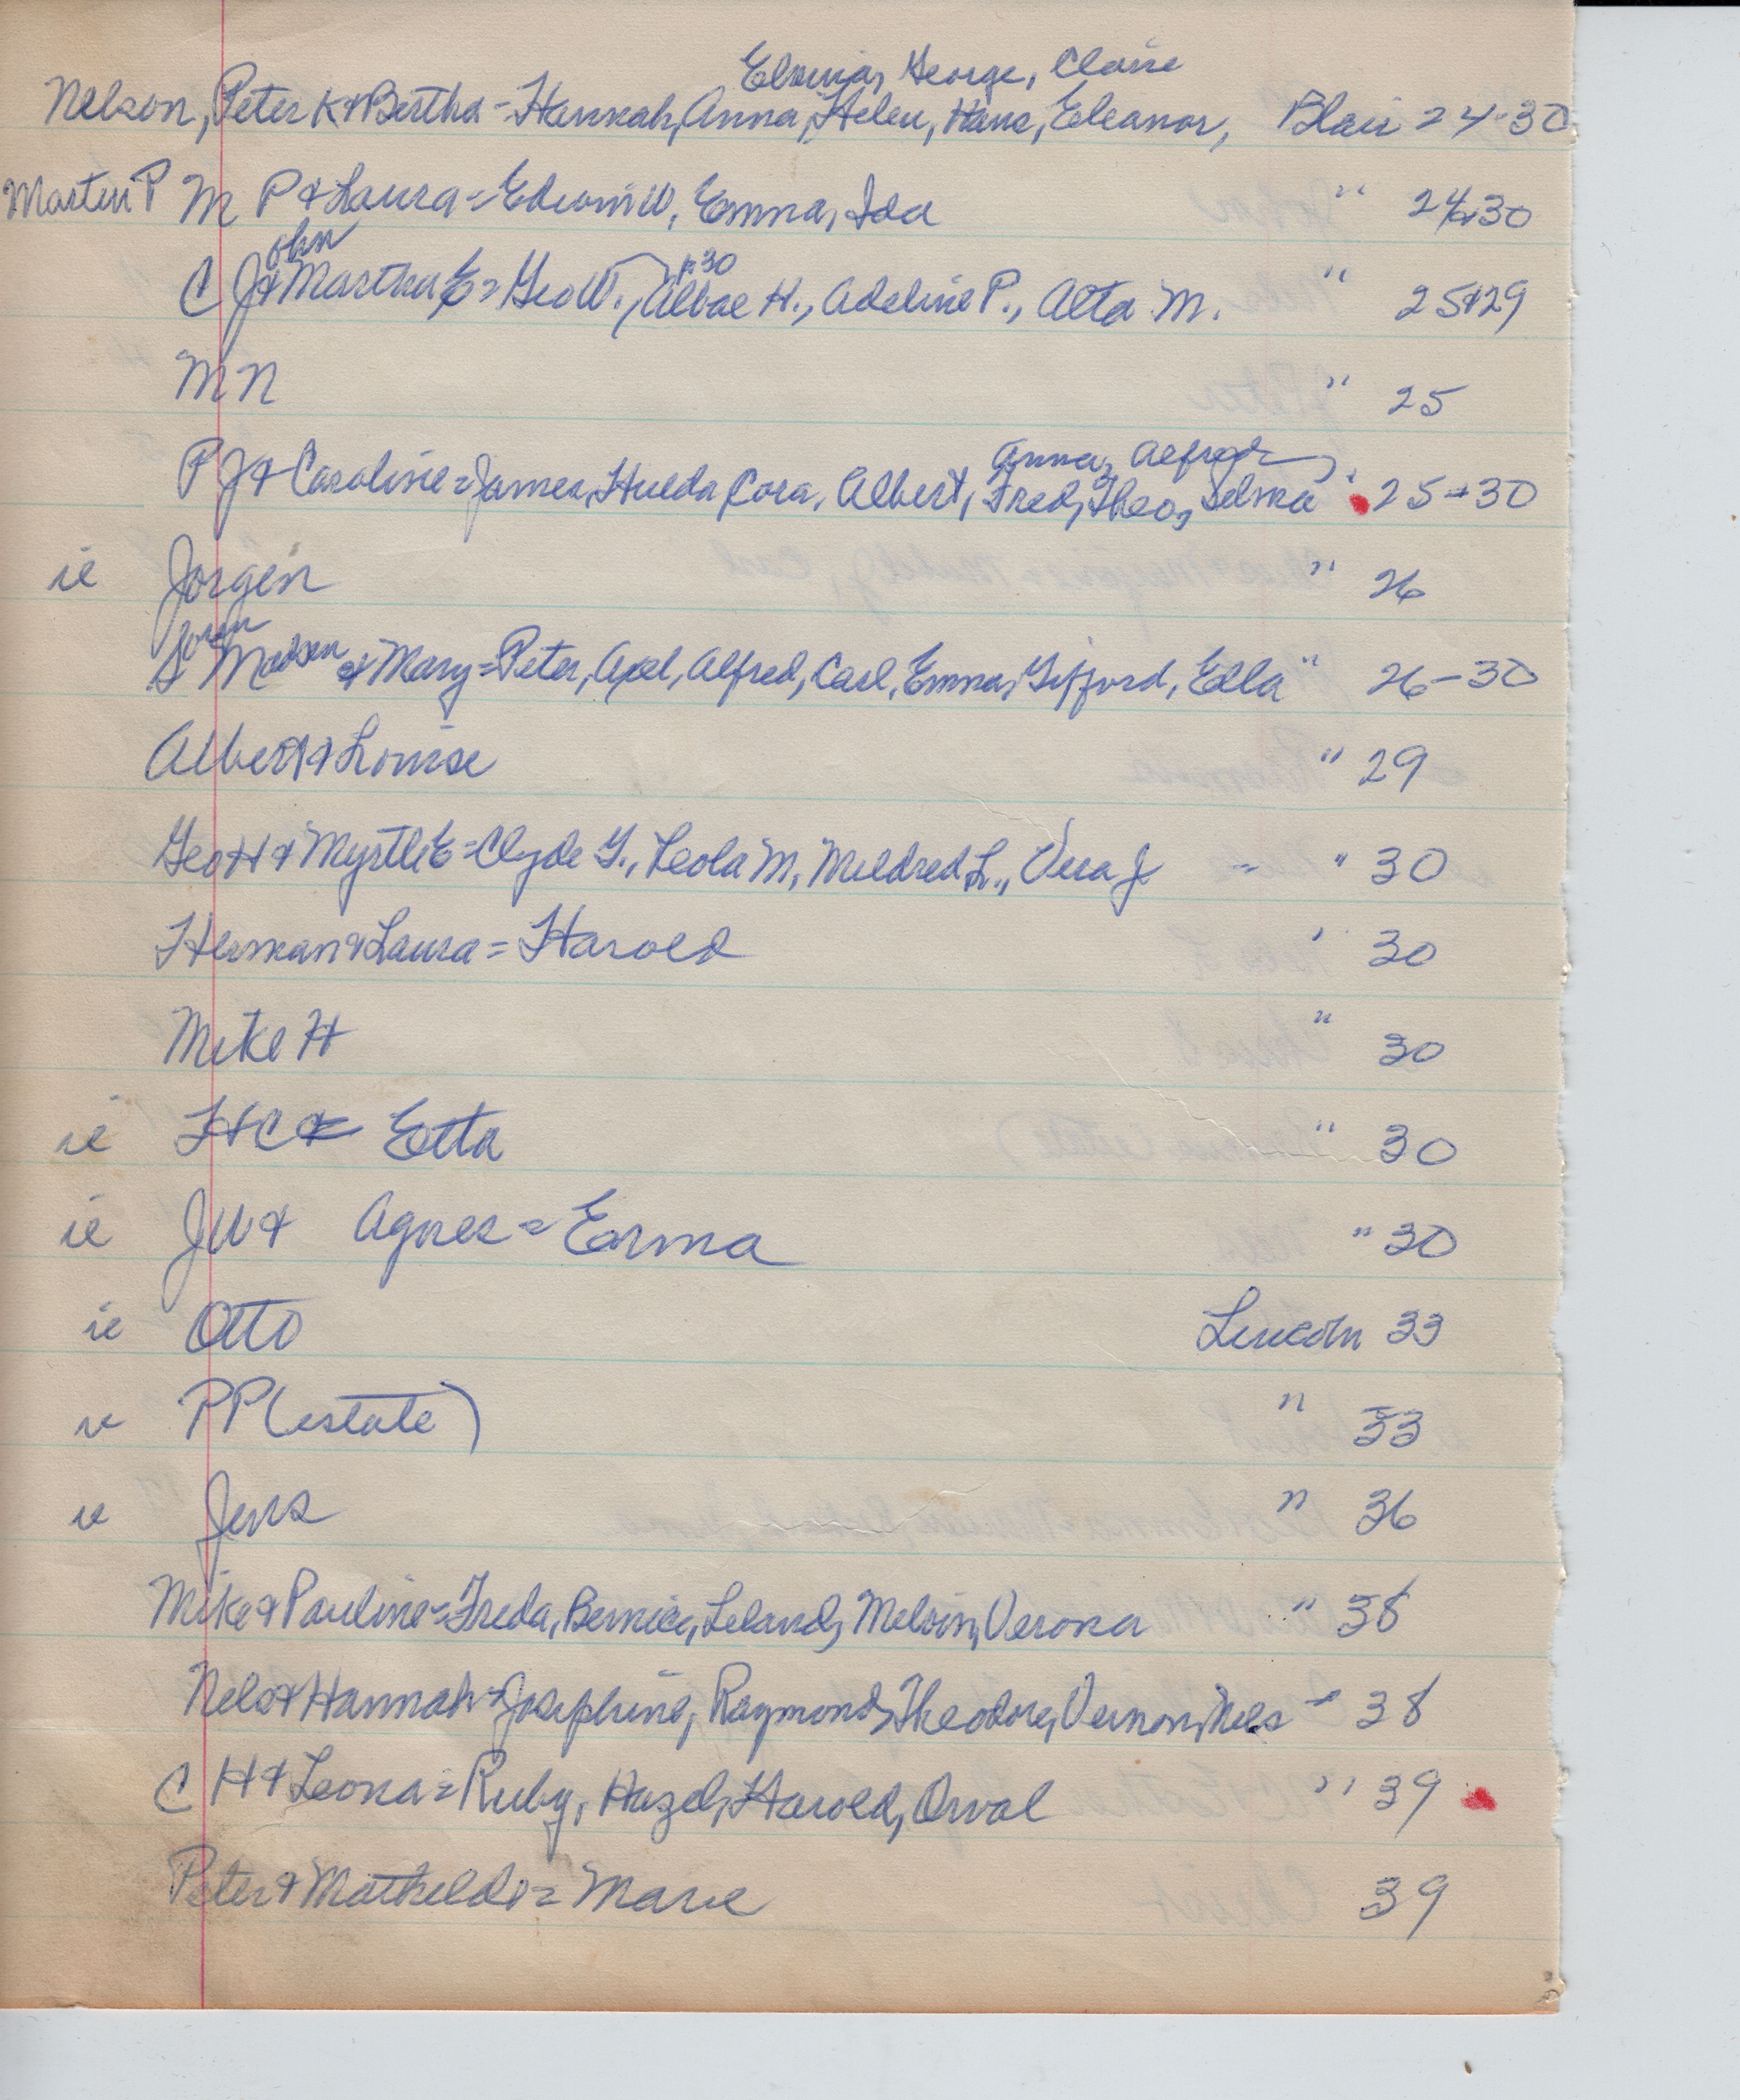 Elonia, George, Claire
Nelson, Peter K & Bertha = Hannah, Anna, Helen, Hans, Eleanor, Blair 24-30
Martin P M P & Laura = Edwin W, Emma, Ida " 24&30
ohn p.30
C J & Martha E = Geo W., Albae H., Adeline P., Alta M. " 25&29
M N " 25
Anna, Alfred
P J & Caroline = James, Hulda, Cora, Albert, Fred, Theo, Selma " 25-30
ie Jorgen " 26
Soren
S Madsen & Mary = Peter, Axel, Alfred, Carl, Emma, Gifford, Ella " 26-30
Albert & Louise " 29
Geo H & Myrtle E = Clyde G., Leola M, Mildred L., Vera J " 30
Herman & Laura = Harold " 30
Mike H " 30
ie H C & Etta " 30
ie J W & Agnes = Erma " 30
ie Otto Lincoln 33
ie P P (estate) " 33
ie Jens " 36
Mike & Pauline = Freda, Bernice, Leland, Melvin, Verona " 38
Nels & Hannah = Josephine, Raymond, Theodore, Vernon, Nels " 38
C H & Leona = Ruby, Hazel, Harold, Orval " 39
Peter & Mathelde = Marie 39